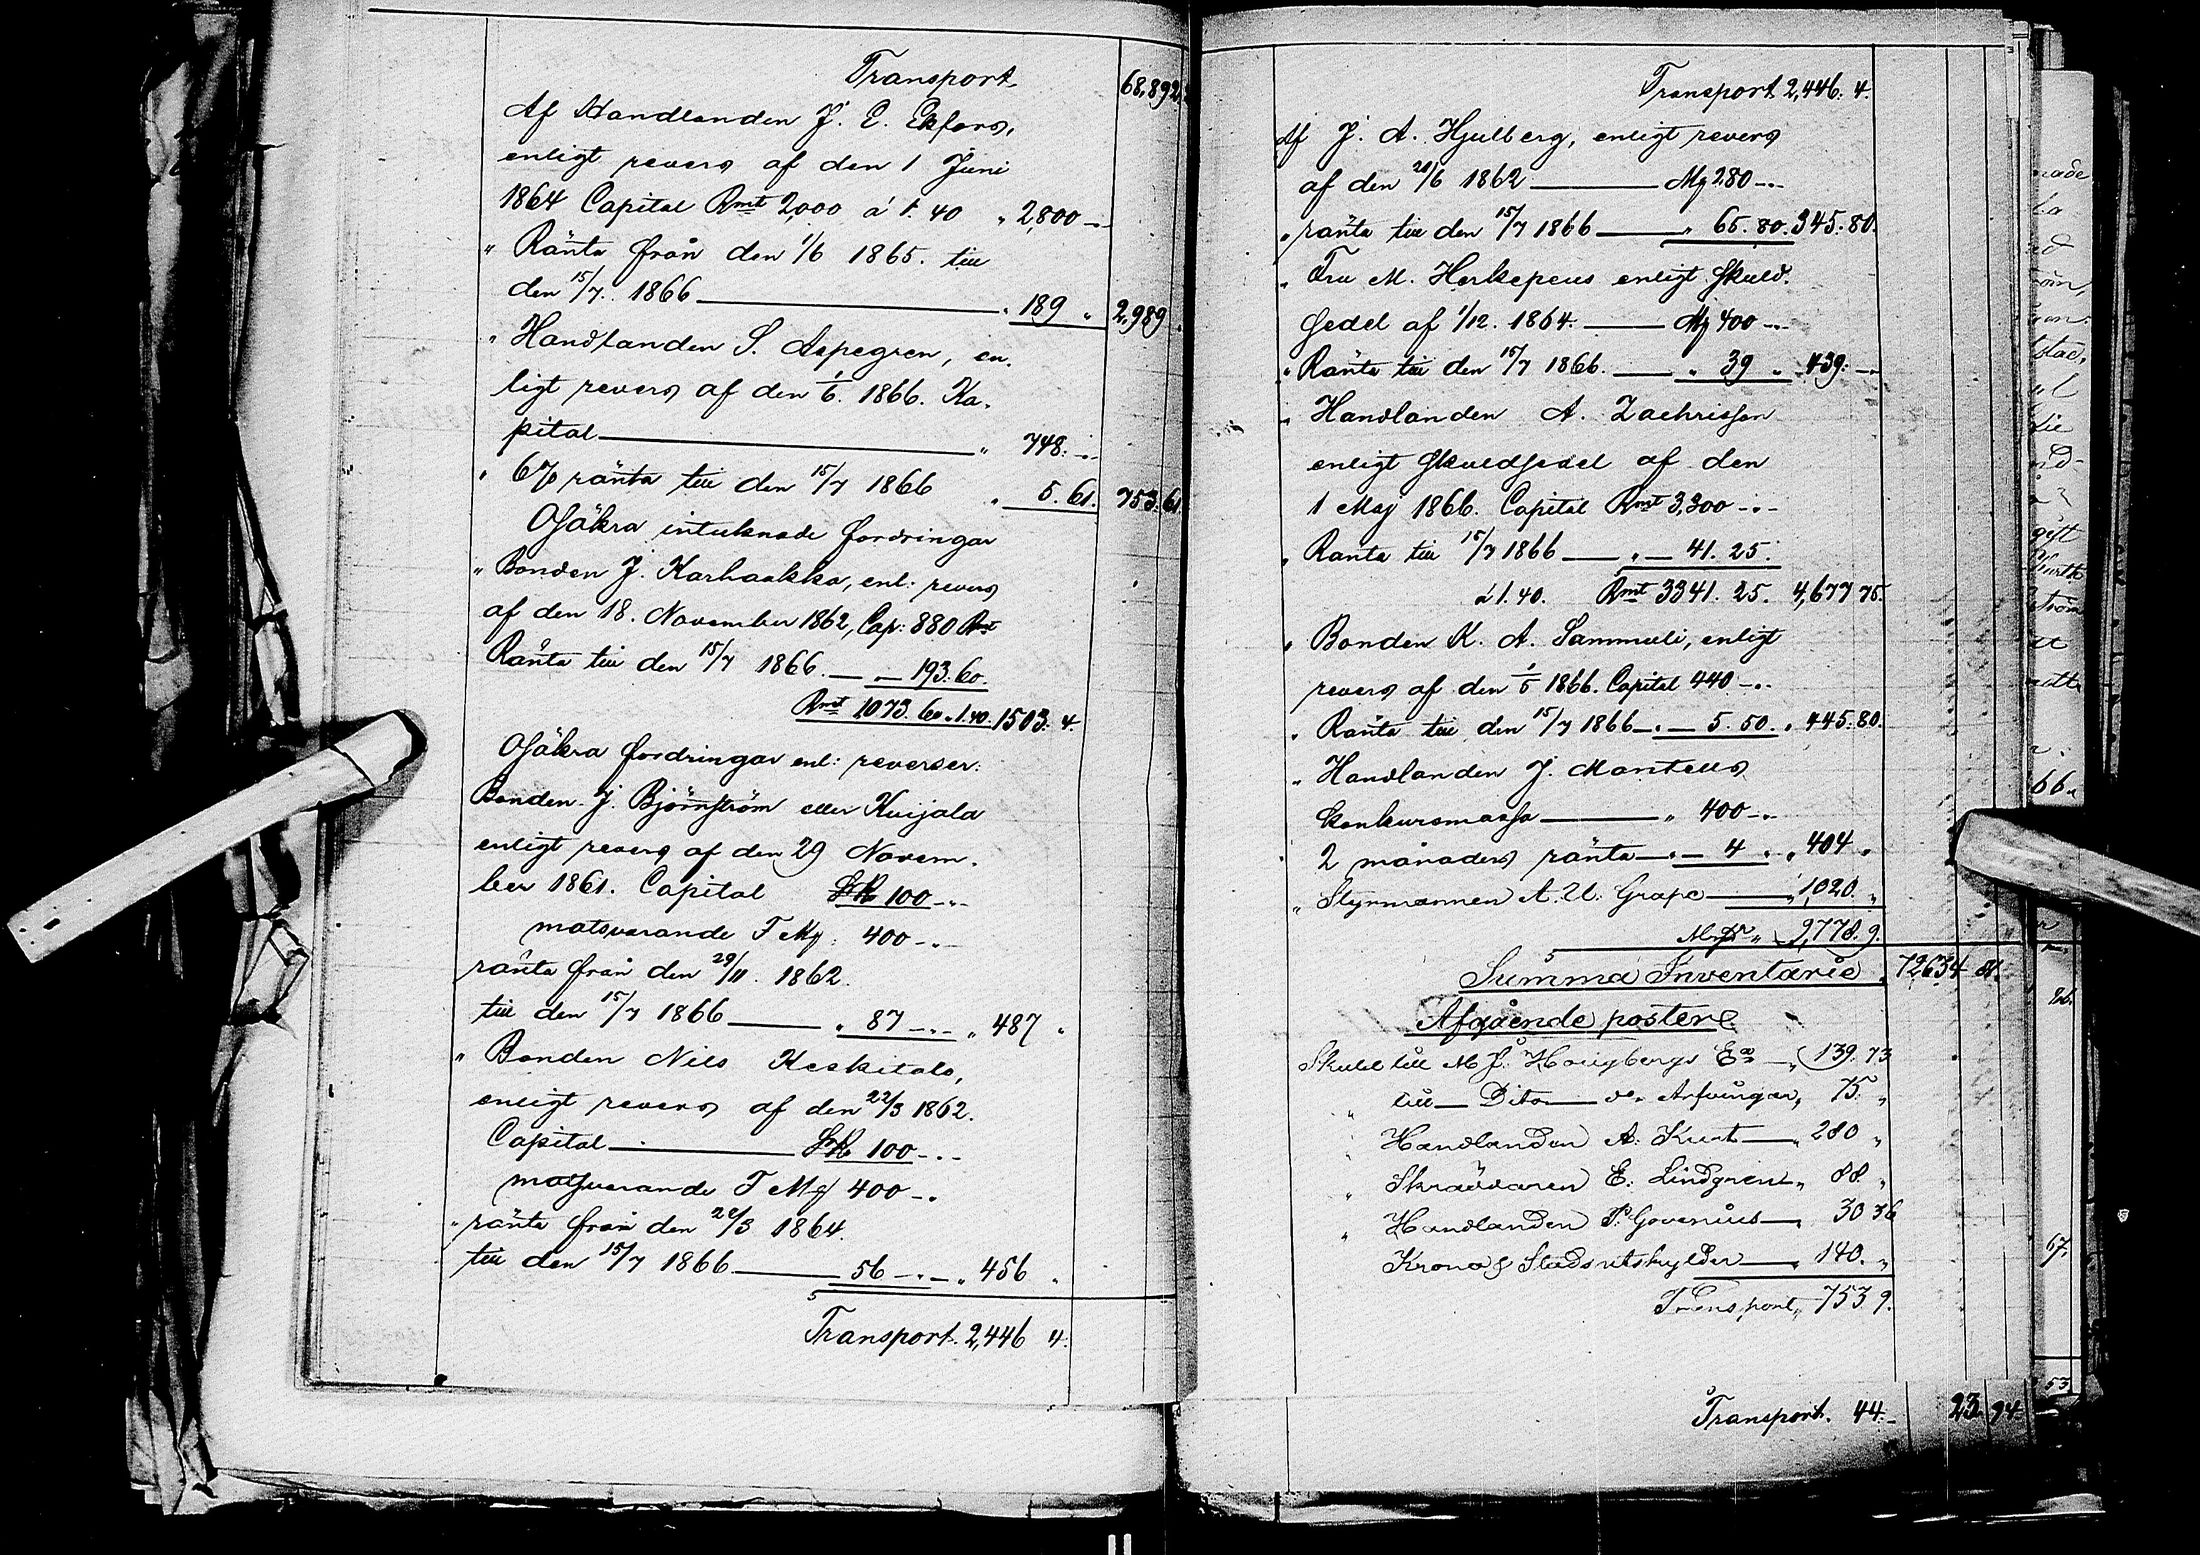 Transport 68,892
Af Handlanden J. E. Ekfors,
enligt revers af den 1 Juni
1864 Capital Rmt 2,000 á 1.40 " 2,800 -"-
" Ränta från den 1/6 1865. till
den 15/7. 1866 " 189 " 2,989
" Handlanden S. Aspegren, en-
ligt revers af den 1/6. 1866. Ka-
pital " 748: -"-
" 6% ränta till den 15/7 1866 " 5. 61. 753. 61
Osäkra intecknade fordringar
" Bonden J. Karhaakka, enl: revers
af den 18. November 1862, Cap: 880 Rmt
Ränta till den 15/7 1866. — " — 193. 60.
Rmt 1073. 60. á 1.40. 1503. 4.
Osäkra fordringar enl: reverser:
Bonden J. Björnström eller Kuijala
enligt revers af den 29 Novem-
ber 1861. Capital SR 100 -"-
motsvarande F Mg: 400 -"
ränta från den 29/11. 1862.
till den 15/7 1866 " 87 -"- " 487 "
" Bonden Nils Keskitalo,
enligt revers af den 22/3 1862.
Capital SR 100 -"-
motsvarande F Mg 400 -"
" ränta från den 22/3 1864.
till den 15/7 1866 56 -"- " 456 "
Transport. 2,446 4.
Transport 2,446. 4.
Af J. A. Hjulberg, enligt revers
af den 21/6 1862 Mg 280 -"-
" ränta till den 15/7 1866 " 65. 80. 345. 80.
" Fru M. Herkepeus enligt skuld-
sedel af 1/12. 1864. Mg 400 -"-
" Ränta till den 15/7 1866. " 39 " 439. -"-
" Handlanden A. Zachrisson
enligt skuldsedel af den
1 Maj 1866. Capital Rmt 3,300 -"-
" Ränta till 15/7 1866 — " — 41. 25.
á 1.40. Rmt 3341. 25. 4,677 75.
" Bonden K. A. Sammeli, enligt
revers af den 1/5 1866. Capital 440 -"-
" Ränta till den 15/7 1866 — " — 5. 50. " 445. 80.
" Handlanden J. Montells
konkursmassa " 400 -"-
2 månaders ränta — " — 4 " " 404 "
" Styrmannen A. U. Grape " 1,020. "
" 9,778. 9.
Summa Inventarie " 72634 81.
Afgående poster
Skuld till M J. Hougbergs 139. 73
" till — Dito — Arfvingar, 75. "
" Handlanden A. Kurt " 280 "
" Skräddaren E. Lindgren " 88. "
" Handlanden P. Govenius " 30 36
Krono & Stadsutskylder " 140. "
Transport " 753 9.
Transport. 44. - 23. 94.